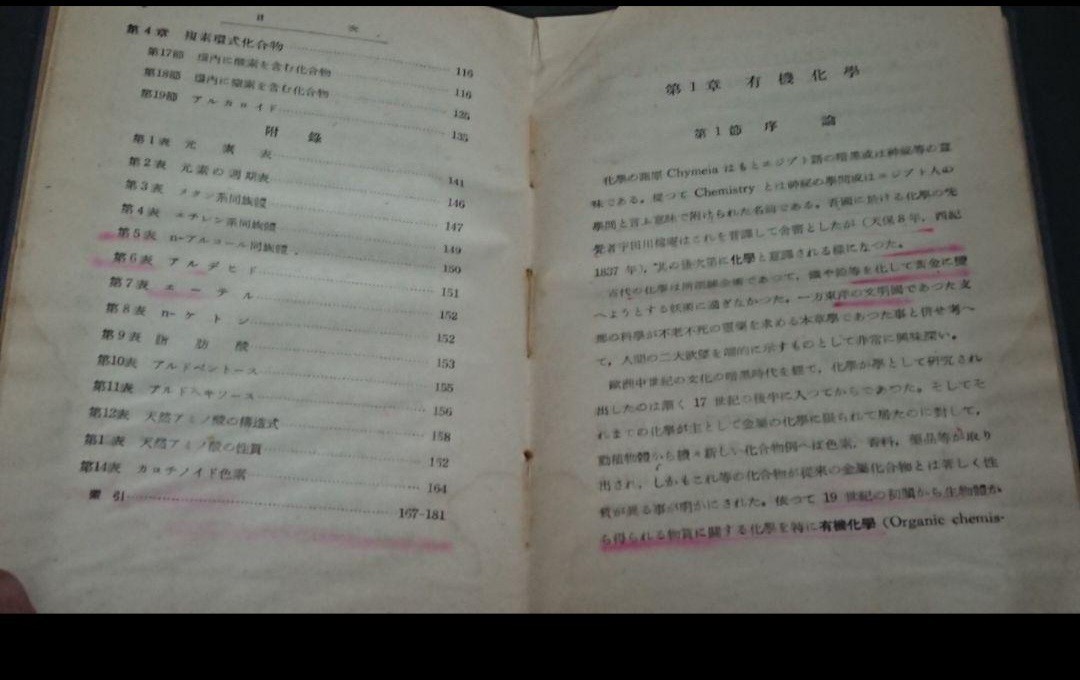 目 次
第4章 複素環式化合物 116
第17節 環内に酸素を含む化合物 116
第18節 環内に窒素を含む化合物 125
第19節 アルカロイド 135
附 錄
第1表 元素表 141
第2表 元素の週期表 146
第3表 メタン系同族體 147
第4表 エチレン系同族體 149
第5表 n-アルコール同族體 150
第6表 アルデヒド 151
第7表 エーテル 152
第8表 n-ケトン 152
第9表 脂肪酸 153
第10表 アルドペントース 155
第11表 アルドヘキソース 156
第12表 天然アミノ酸の構造式 158
第1表 天然アミノ酸の性質 152
第14表 カロチノイド色素 164
索引 167-181
第1章 有機化學
第1節 序論
化學の語原 Chymeia はもとエジプト語の暗黑或は神祕等の意
味である。從つて Chemistry とは神祕の學問或はエジプト人の
學問と言ふ意味で附けられた名前である。吾國に於ける化學の先
覺者宇田川榕菴はこれを音譯して舎密としたが (天保8年, 西紀
1837 年), 其の後次第に化學と意譯される樣になつた。
古代の化學は所謂鍊金術であつて, 鐵や鉛等を化して黃金に變
へようとする妖術に過ぎなかつた。一方東洋の文明國であつた支
那の科學が不老不死の靈藥を求める本草學であつた事と併せ考へ
て, 人間の二大欲望を端的に示すものとして非常に興味深い。
歐洲中世紀の文化の暗黑時代を經て, 化學が學として研究され
出したのは漸く 17 世紀の後半に入つてからであつた。そしてそ
れまでの化學が主として金屬の化學に限られて居たのに對して,
動植物體から種々新しい化合物例へば色素, 香料, 藥品等が取り
出され, しかもこれ等の化合物が從來の金屬化合物とは著しく性
質が異る事が明かにされた。依つて 19 世紀の初頭から生物體か
ら得られる物質に關する化學を特に有機化學 (Organic chemis-